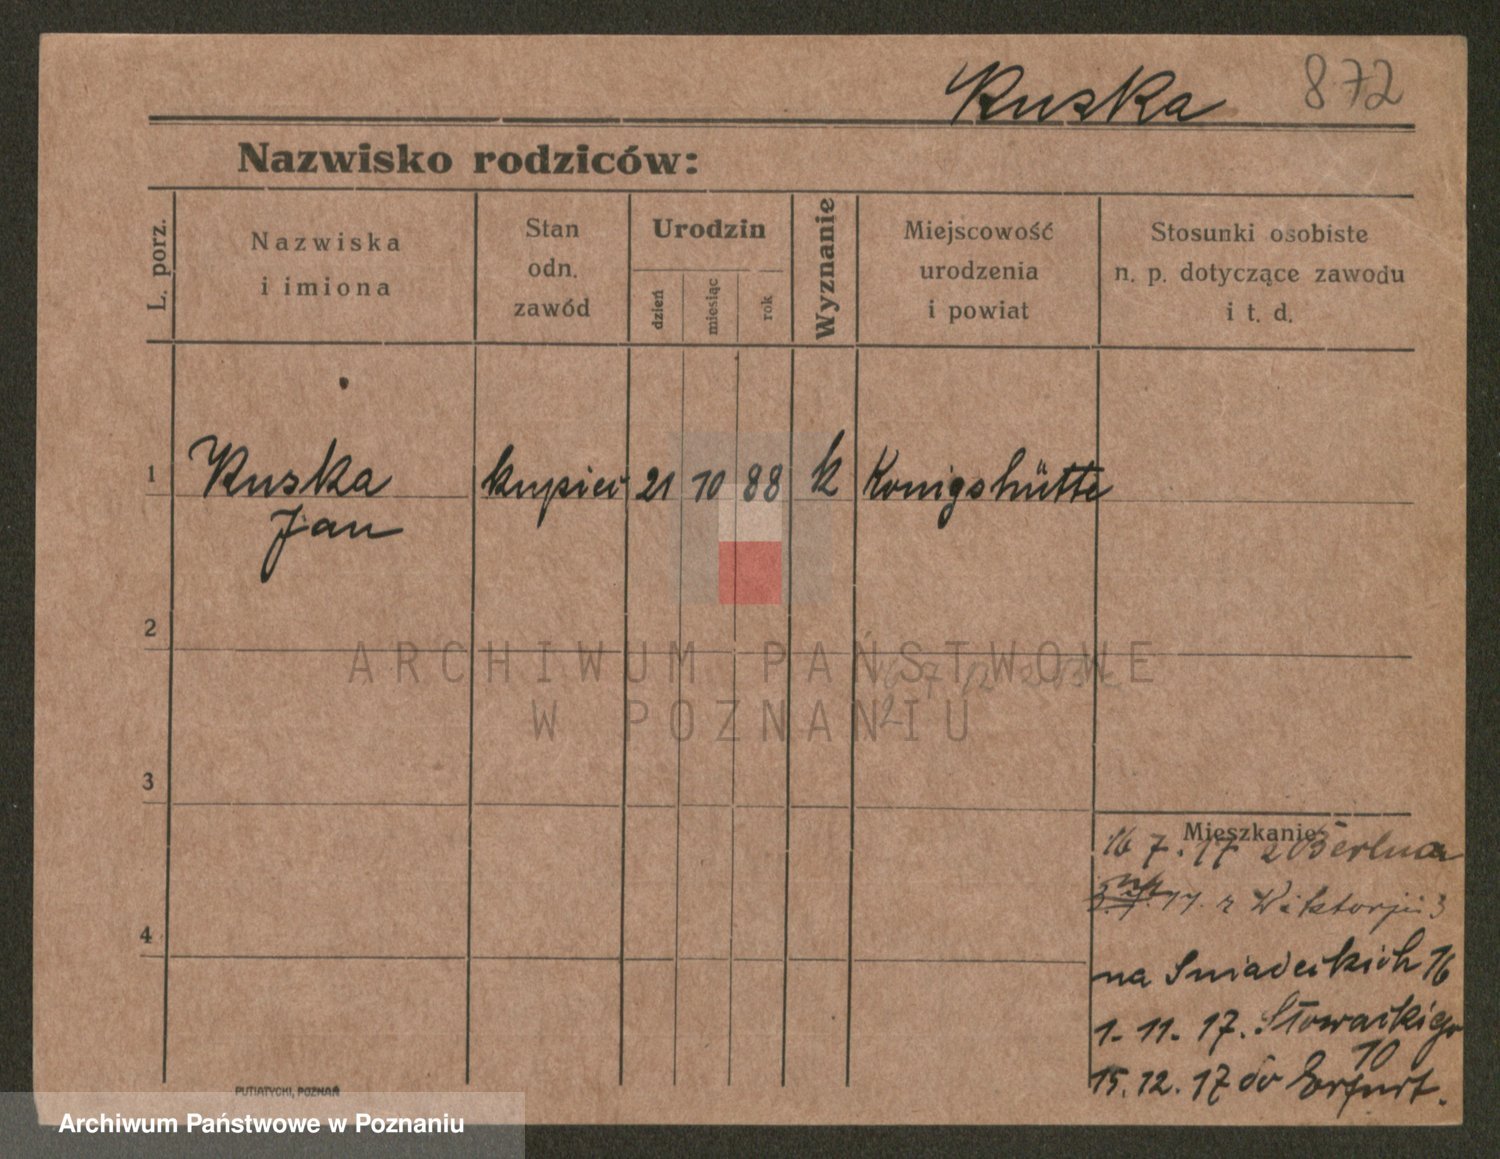 Kuska 872
Nazwisko rodziców:
L. porz.
Nazwiska
i imiona
Stan
odn.
zawód
Urodzin
dzień
miesiąc
rok
Wyznanie
Miejscowość
urodzenia
i powiat
Stosunki osobiste
n. p. dotyczące zawodu
i t. d.
1 Kuska kupiec 21 10 88 k Konigshütte
Jan
2
ARCHIWUM PAŃSTWOWE
W POZNANIU
3
Mieszkanie
16 7. 17 z Berlina
17. z Wiktorji 3
4
na Sniadeckich 16
1. 11. 17. Słowackiego
10
15. 12. 17 do Erfurt.
PUTIATYCKI, POZNAŃ
Archiwum Państwowe w Poznaniu